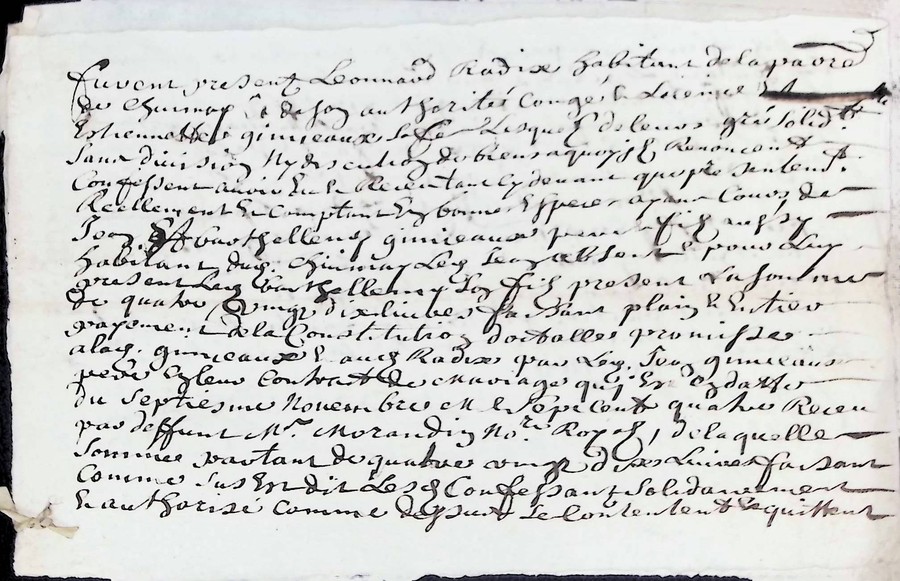 furent present Leonnard Radix habitant de la parre
de Charmay & de son authorites Congé & Licence
Estiennette gimeaux sa fe Lesques de leurs gré solidt
sans division Ny discution de biens a quoy Renoncent
Confessent avoir Eu & Receu tant cy devant que pntement
Reellement & Comptant En bonnes Especes ayant Cours de
Jean & barthellemy gimeaux pere & fils aussy
habitant dud. Charmay Led Jean absent & pour Luy
present Led barthellemy son fils present La somme
de quatre vingt dix livres faisant plain & Entier
payement de la Constitution dotballe promisse
alad. gimeaux & aud Radix par Led. Jean gimeaux
pere En leur Contrat de Mariage quy Est En datte
du septiesme Novembre M sept cent quatre Receu
par deffunt Mr. Morandin Nore Royal, de laquelle
somme partant de quatre vingt dix Livres faisant
comme sus Est dit Lesd Confessant solidairement
& authorise comme dessus se Contentent & quittent